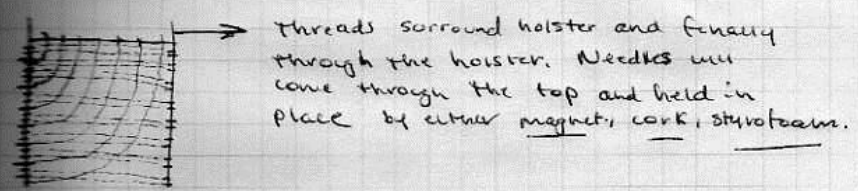 Threads surround holster and finally
through the holster. Needles will
come through the top and held in
place by either magnet, cork, styrofoam.